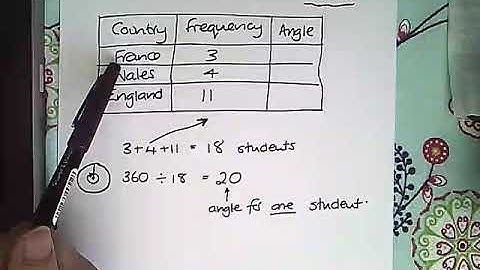 Country Frequency Angle
France 3
Wales 4
England 11
3+4+11 = 18 students
360 ÷ 18 = 20
angle for one student.